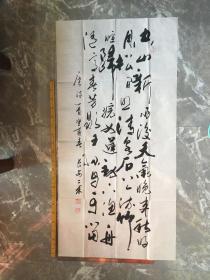 空山新雨後天氣晚来秋明
月松间照清泉石上流竹
喧歸浣女蓮動下漁舟
随意春芳歇王孫自可留
唐诗一首